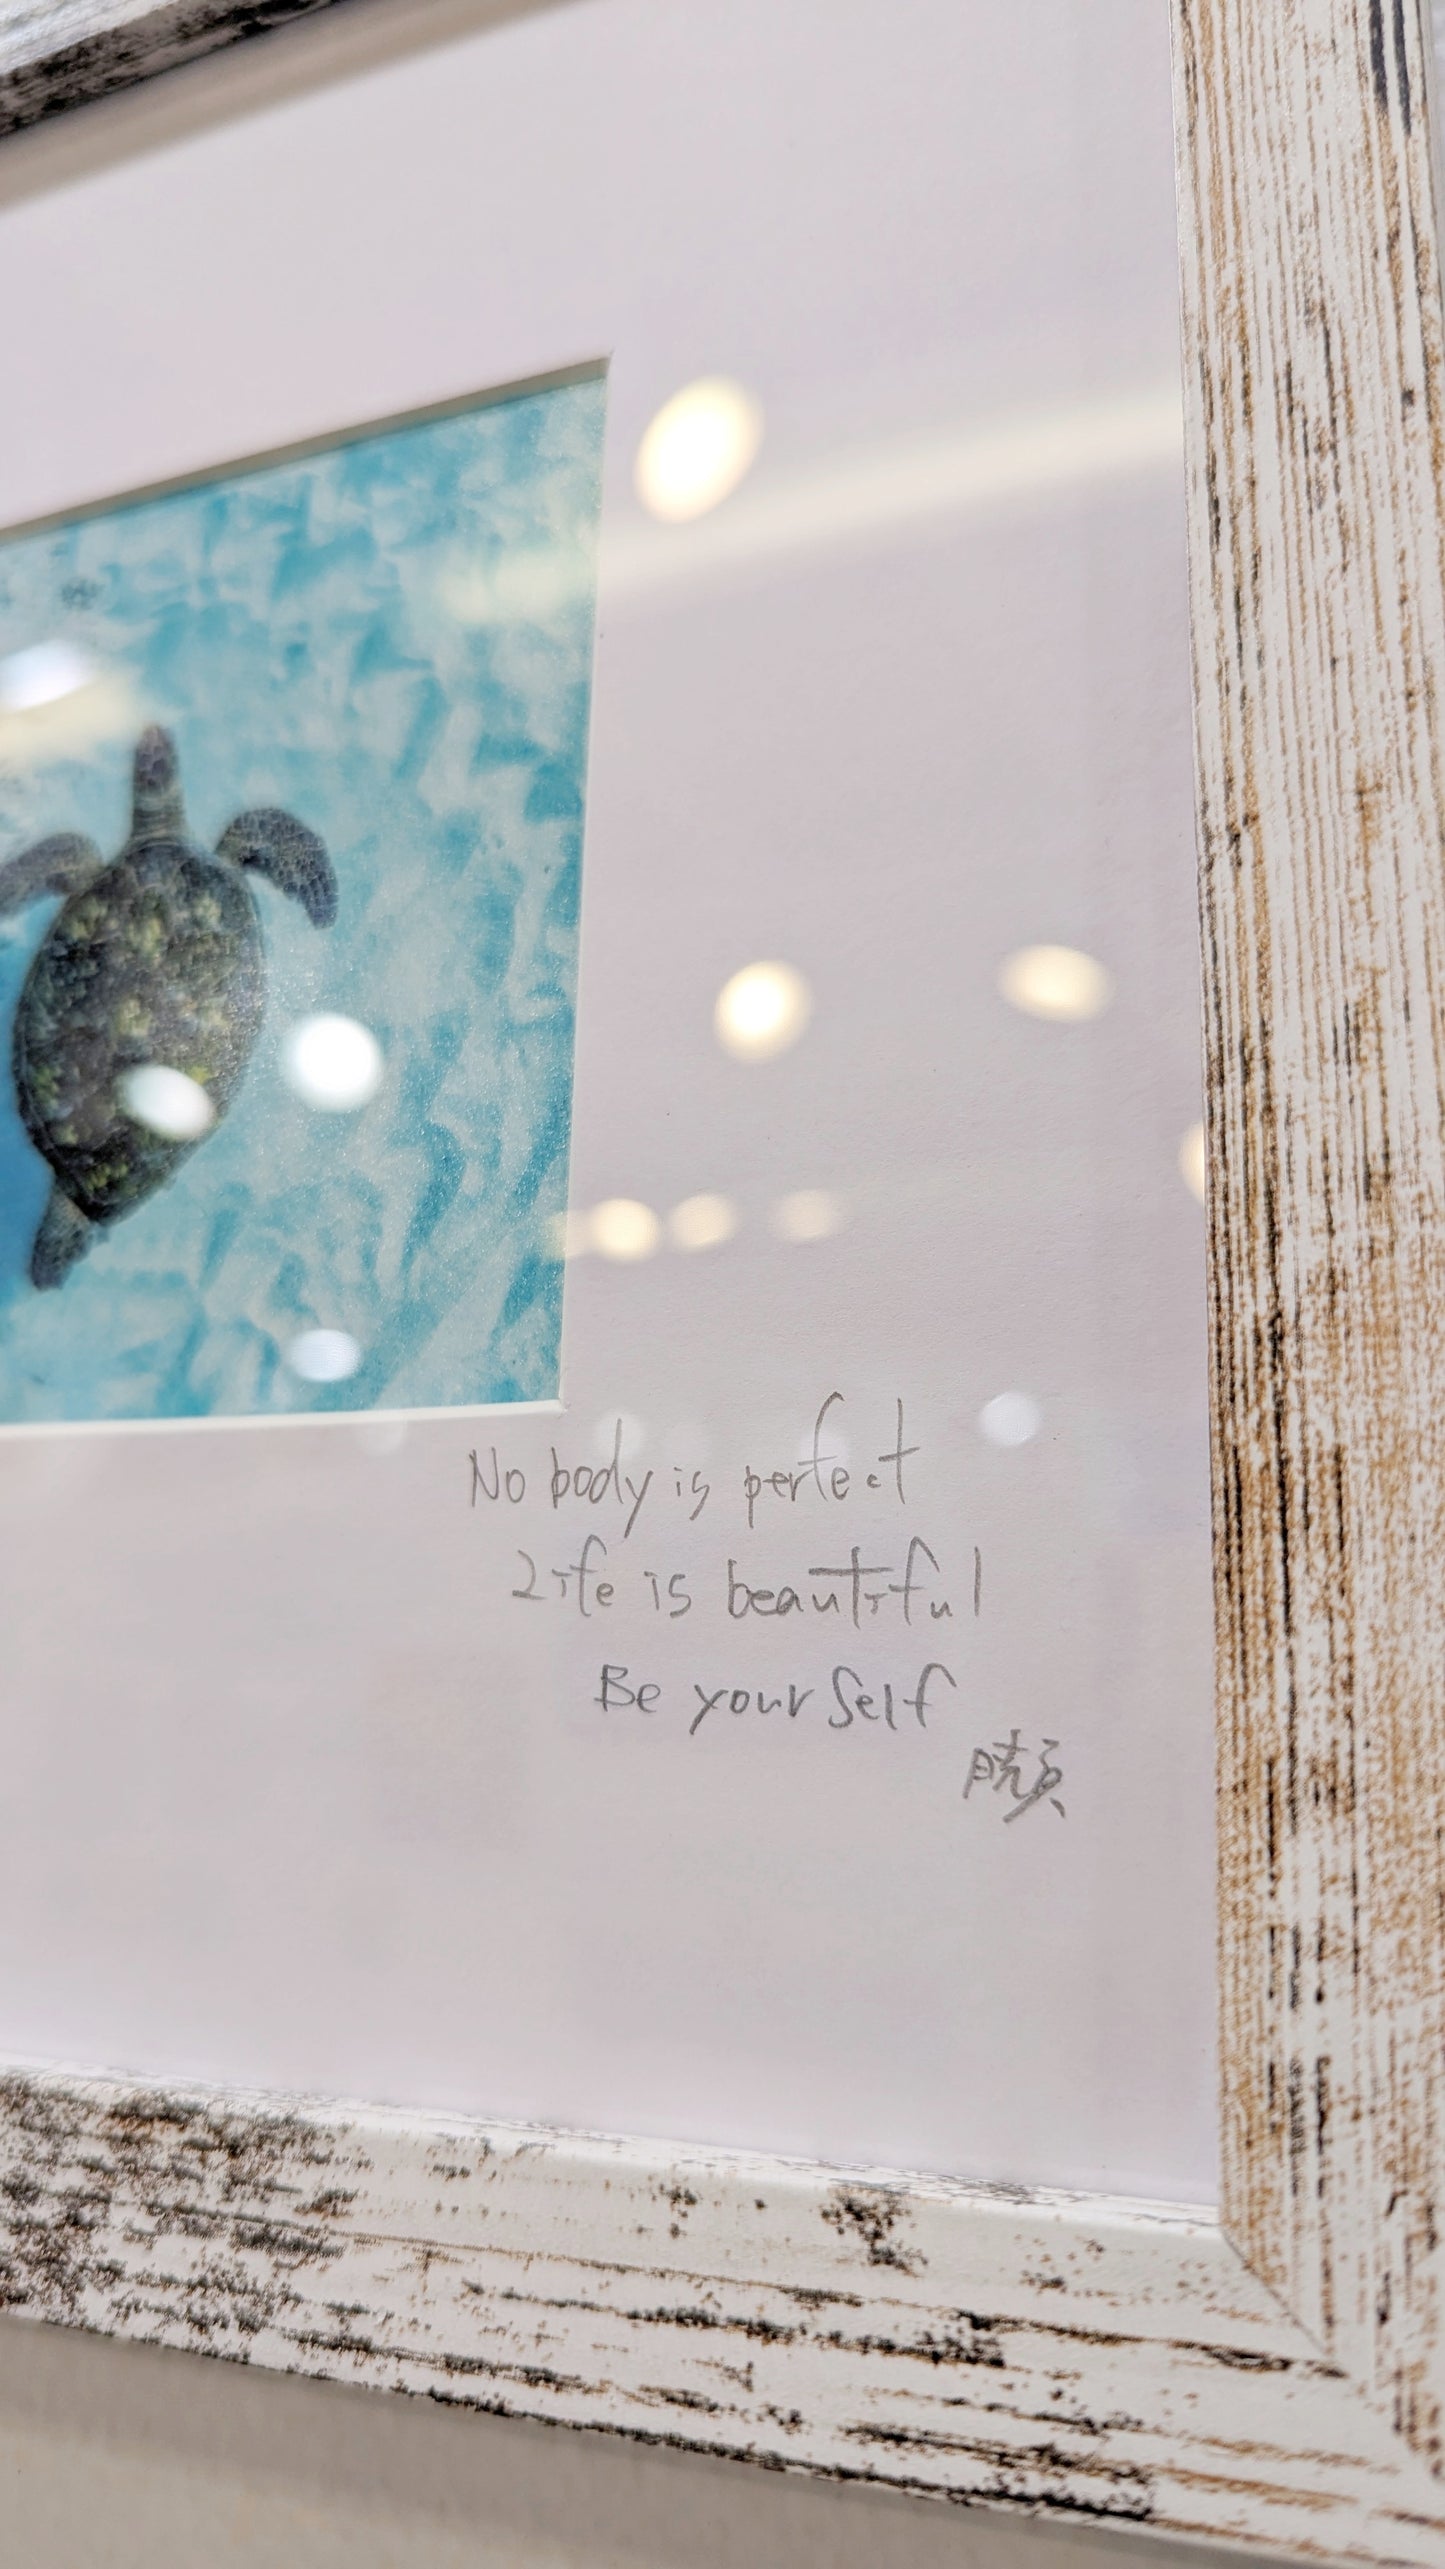 No body is perfect
Life is beautiful
Be your Self